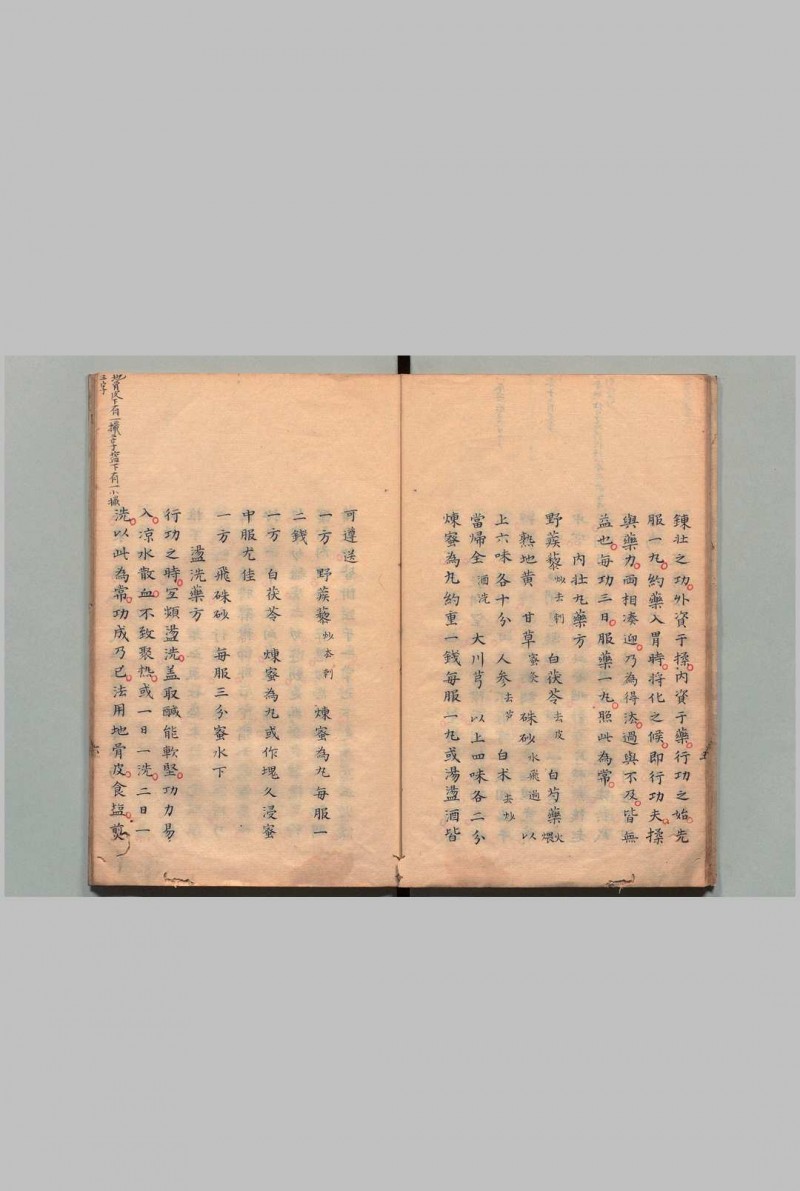 鍊壯之功外資于揉內資于藥行功之始先
服一丸約藥入胃時將化之候即行功夫揉
與藥力兩相湊迎乃為得法過與不及皆無
益也每功三日服藥一丸照此為常
內壯丸藥方
野蒺藜炒去刺 白茯苓去皮 白芍藥火煨
熟地黄 甘草蜜炙 硃砂水飛過 以
上六味各十分 人参去芦 白术去炒
當歸全酒洗 大川芎 以上四味各二分
煉蜜為丸約重一錢每服一丸或湯盪酒皆
五
可遵送
一方 野蒺藜炒去刺 煉蜜為丸每服一
二錢
一方 白茯苓 煉蜜為丸或作塊久浸蜜
中服尤佳
一方 飛硃砂 每服三分蜜水下
盪洗藥方
行功之時宜頻盪洗盖取鹹能軟堅功力易
入凉水散血不致聚热或一日一洗二日一
洗以此為常功成乃已法用地骨皮食塩
六
地骨皮下有一撮字塩下有一小撮
三字